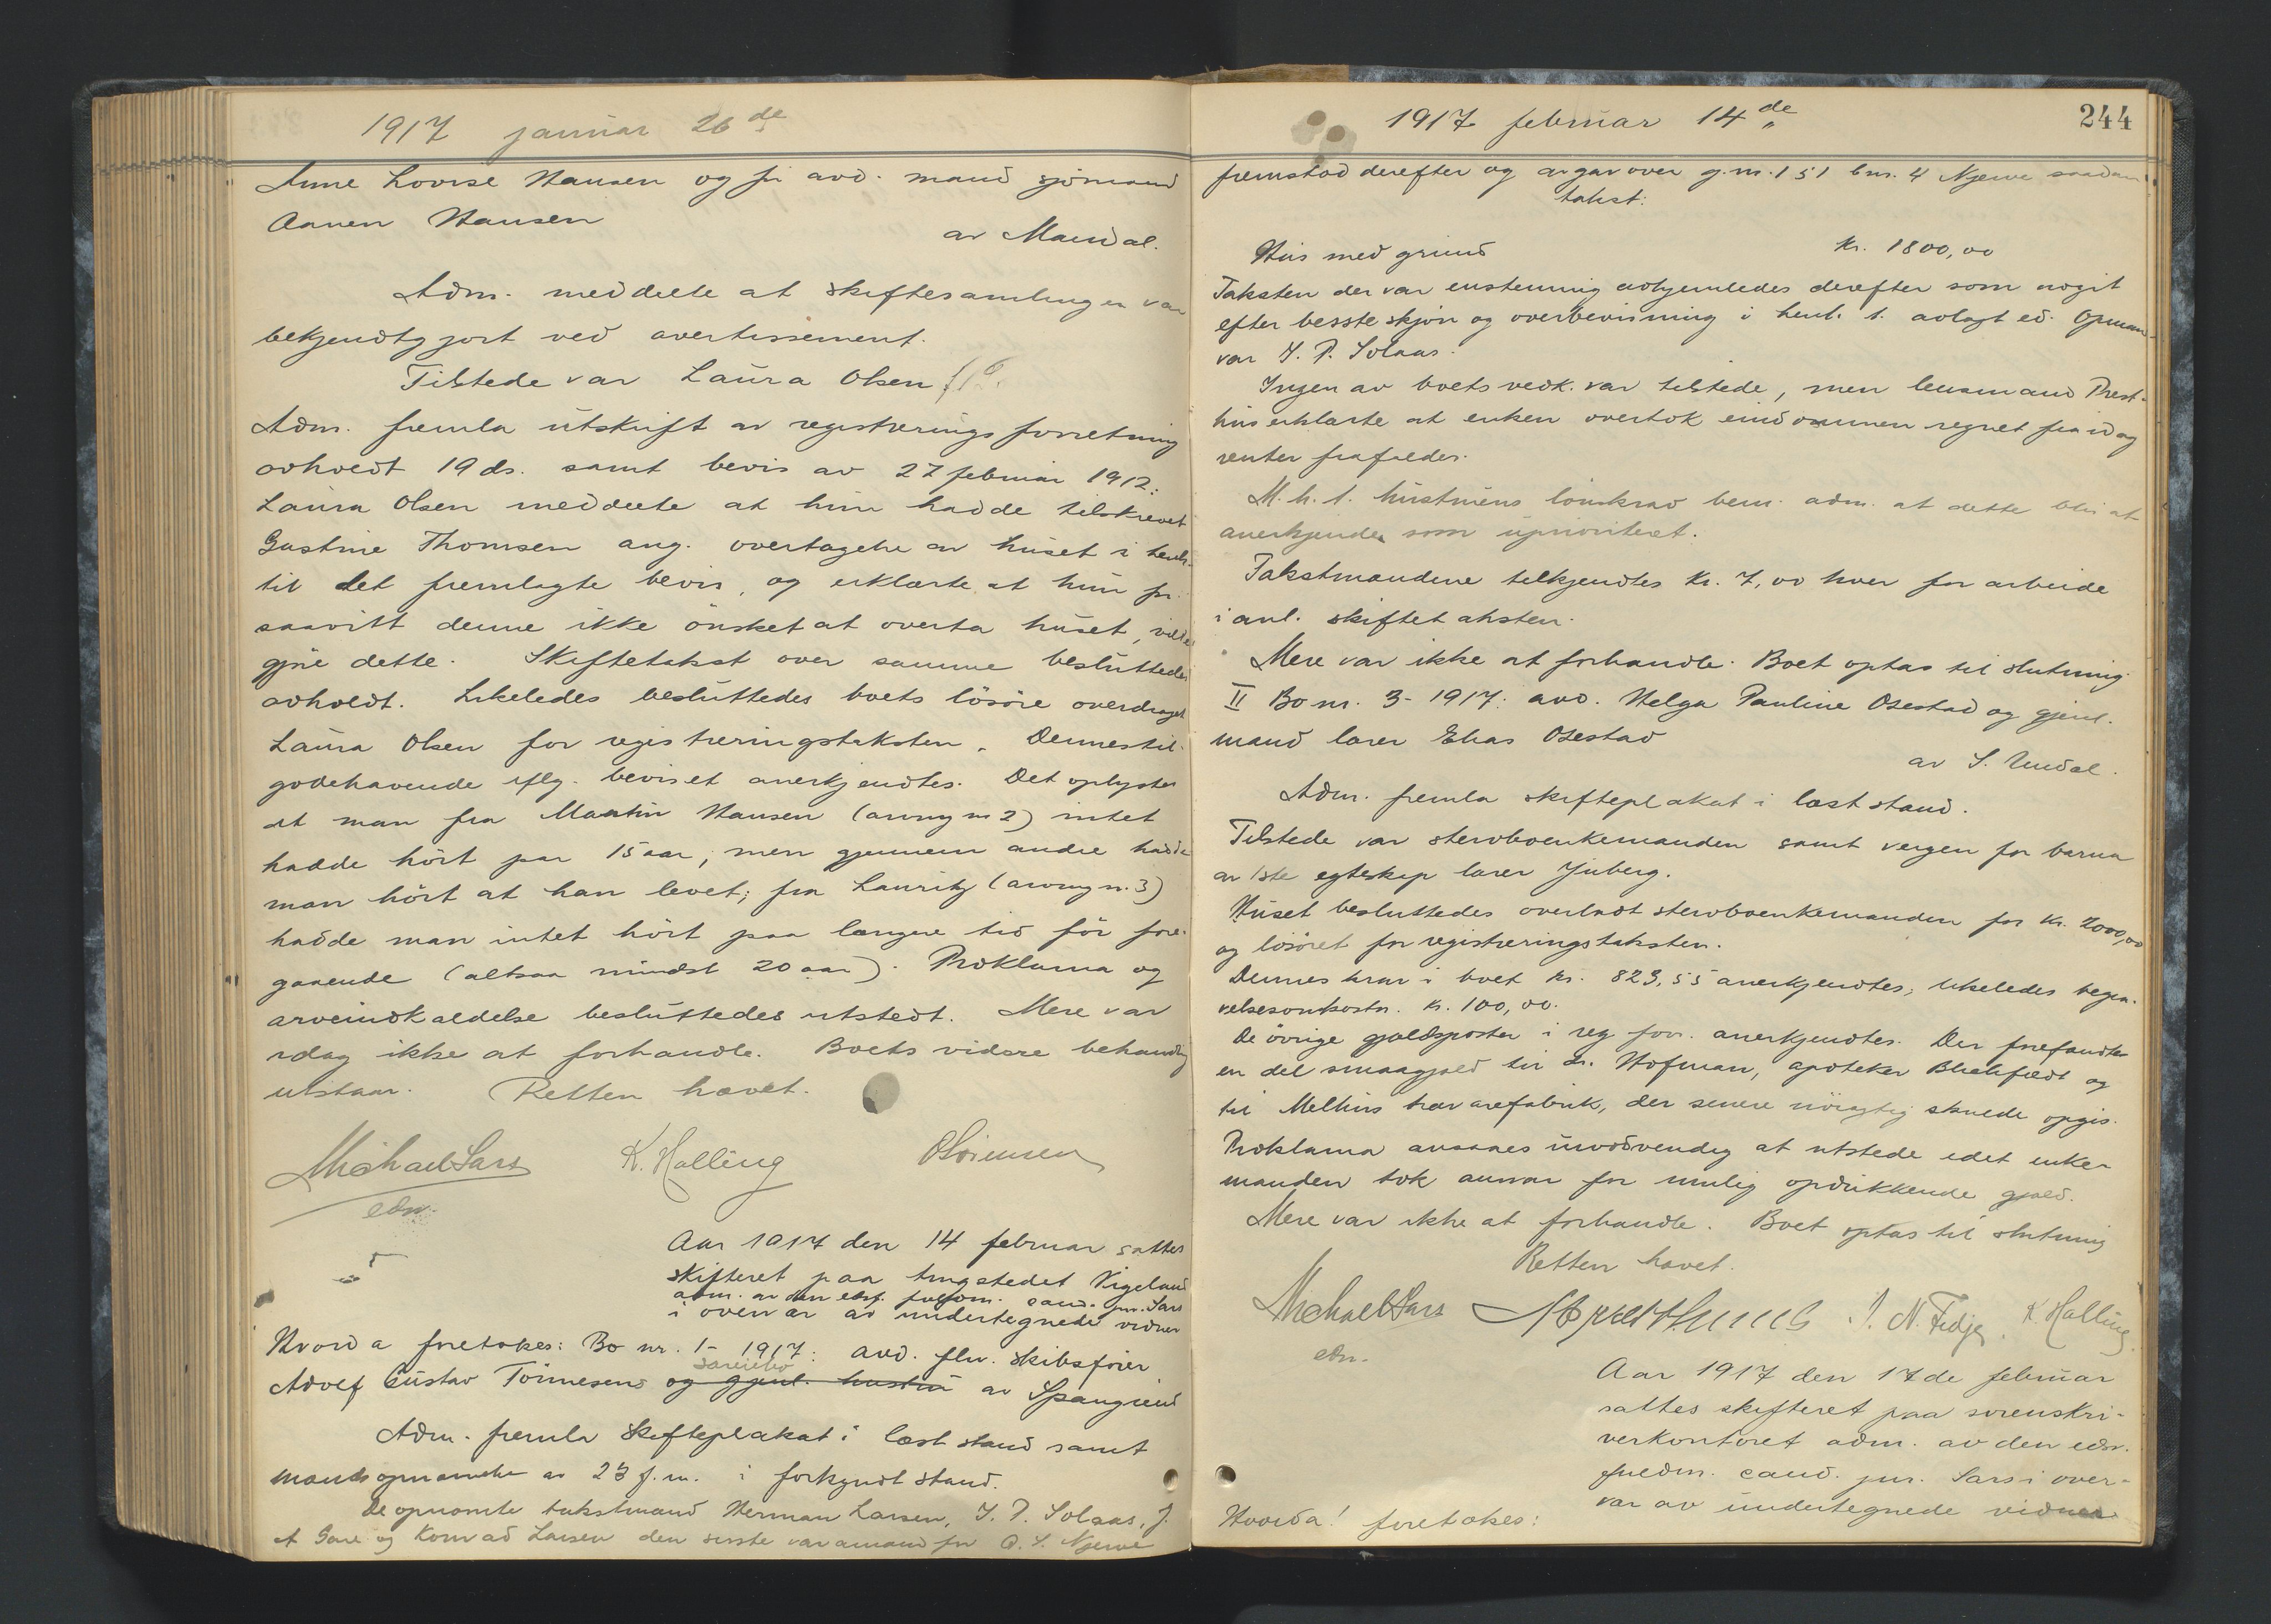 1917 januar 26de
Anne Lovise Hansen og fr avd. mand sjömand
Aanen Hansen
av Mandal.
Adm. meddelte at skiftesamlingen var
bekjendtgjort ved avertissement.
Tilstede var Laura Olsen
Adm. fremla utskrift av registreringsforretning
avholdt 19 ds. samt bevis av 27 februar 1912:
Laura Olsen meddelte at hun hadde tilskrevet
Gustine Thomsen ang. overtagelse av huset i henh.
til det fremlagte bevis, og erklærte at hun for
saavitt denne ikke önsket at overta huset, vilde
gjöre dette. Skiftetakst over samme besluttedes
avholdt. Likeledes besluttedes boets lösöre overdraget
Laura Olsen for registreringstaksten. Dennes til-
godehavende iflg. beviset anerkjendtes. Det oplystes
at man fra Martin Hansen (arving nr 2) intet
hadde hört paa 15 aar, men gjennem andre hadde
man hört at han levet; fra Lauritz (arving n. 3)
hadde man intet hört paa længere tid för fore-
gaaende (altsaa mindst 20 aar). Proklama og
arveindkaldelse besluttedes utstedt. Mere var
idag ikke at forhandle. Boets videre behandlg
utstaar. Retten hævet.
Michael Sars K. Halling OSörensen
edsv.
Aar 1917 den 14 februar sattes
skifteret paa tingstedet Vigeland
adm. av den edsf. fuldm. cand. jur. Sars
i overvær av undertegnede vidner
Hvorda foretokes: Bo nr. 1- 1917: avd. flv. skibsförer
særeiebo
Adolf Gustav Tönnesens og gjenl. hustru av Spangreid
Adm. fremla skifteplakat i læst stand samt
mandsopnævnelse av 23 f.m. i forkyndt stand.
De opnævnte takstmænd Herman Larsen, J. P. Solaas, J.
A Gare og Konrad Larsen den sidste varamand for O. S. Njerve
1917 februar 14de
244
fremstod derefter og avgav over g.nr. 151 bnr. 4 Njerve saadan
takst:
Hus med grund kr. 1800,00
Taksten der var enstemmig avhjemledes derefter som avgit
efter besste skjön og overbevisning i henh. t. avlagt ed. Opmand
var J. P. Solaas.
Ingen av boets vedk. var tilstede, men lensmand Prest-
hus erklærte at enken overtok eiendommen regnet fra idag
renter frafaldes.
M.h.t. hustruens lönskrav bem. adm. at dette blir at
anerkjende som uprioriteret.
Takstmændene tilkjendtes kr. 7,00 hver for arbeide
i anl. skiftetaksten.
Mere var ikke at forhandle. Boet optas til slutning.
II Bo nr. 3- 1917: avd. Helga Pauline Osestad og gjenl.
mand lærer Elias Osestad
av S. Undal.
Adm. fremla skifteplakat i læst stand.
Tilstede var stervboenkemanden samt vergen for barna
av 1ste egteskap lærer Juberg.
Huset besluttedes overladt stervboenkemanden for kr. 2000,00
og lösöret for registreringstaksten.
Dennes krav i boet kr. 823,55 anerkjendtes, likeledes begra-
velsesomkostn. kr. 100,00.
De övrige gjældsposter i reg forr. anerkjendtes. Der forefandtes
en del smaagjæld til dr. Hofman, apoteker Blichfeldt og
til Melhus trævarefabrik, der senere nöiagtig skulde opgis.
Proklama ansaaes unödvendig at utstede idet enke-
manden tok ansvar for mulig opdukkende gjæld.
Mere var ikke at forhandle. Boet optas til slutning
Retten hævet.
Michael Sars J. N. Fidje. K. Halling
edsv.
Aar 1917 den 17de februar
sattes skifteret paa sorenskri-
verkontoret adm. av den edsv.
fuldm. cand. jur. Sars i over-
vær av undertegnede vidner
Hvorda! foretokes: